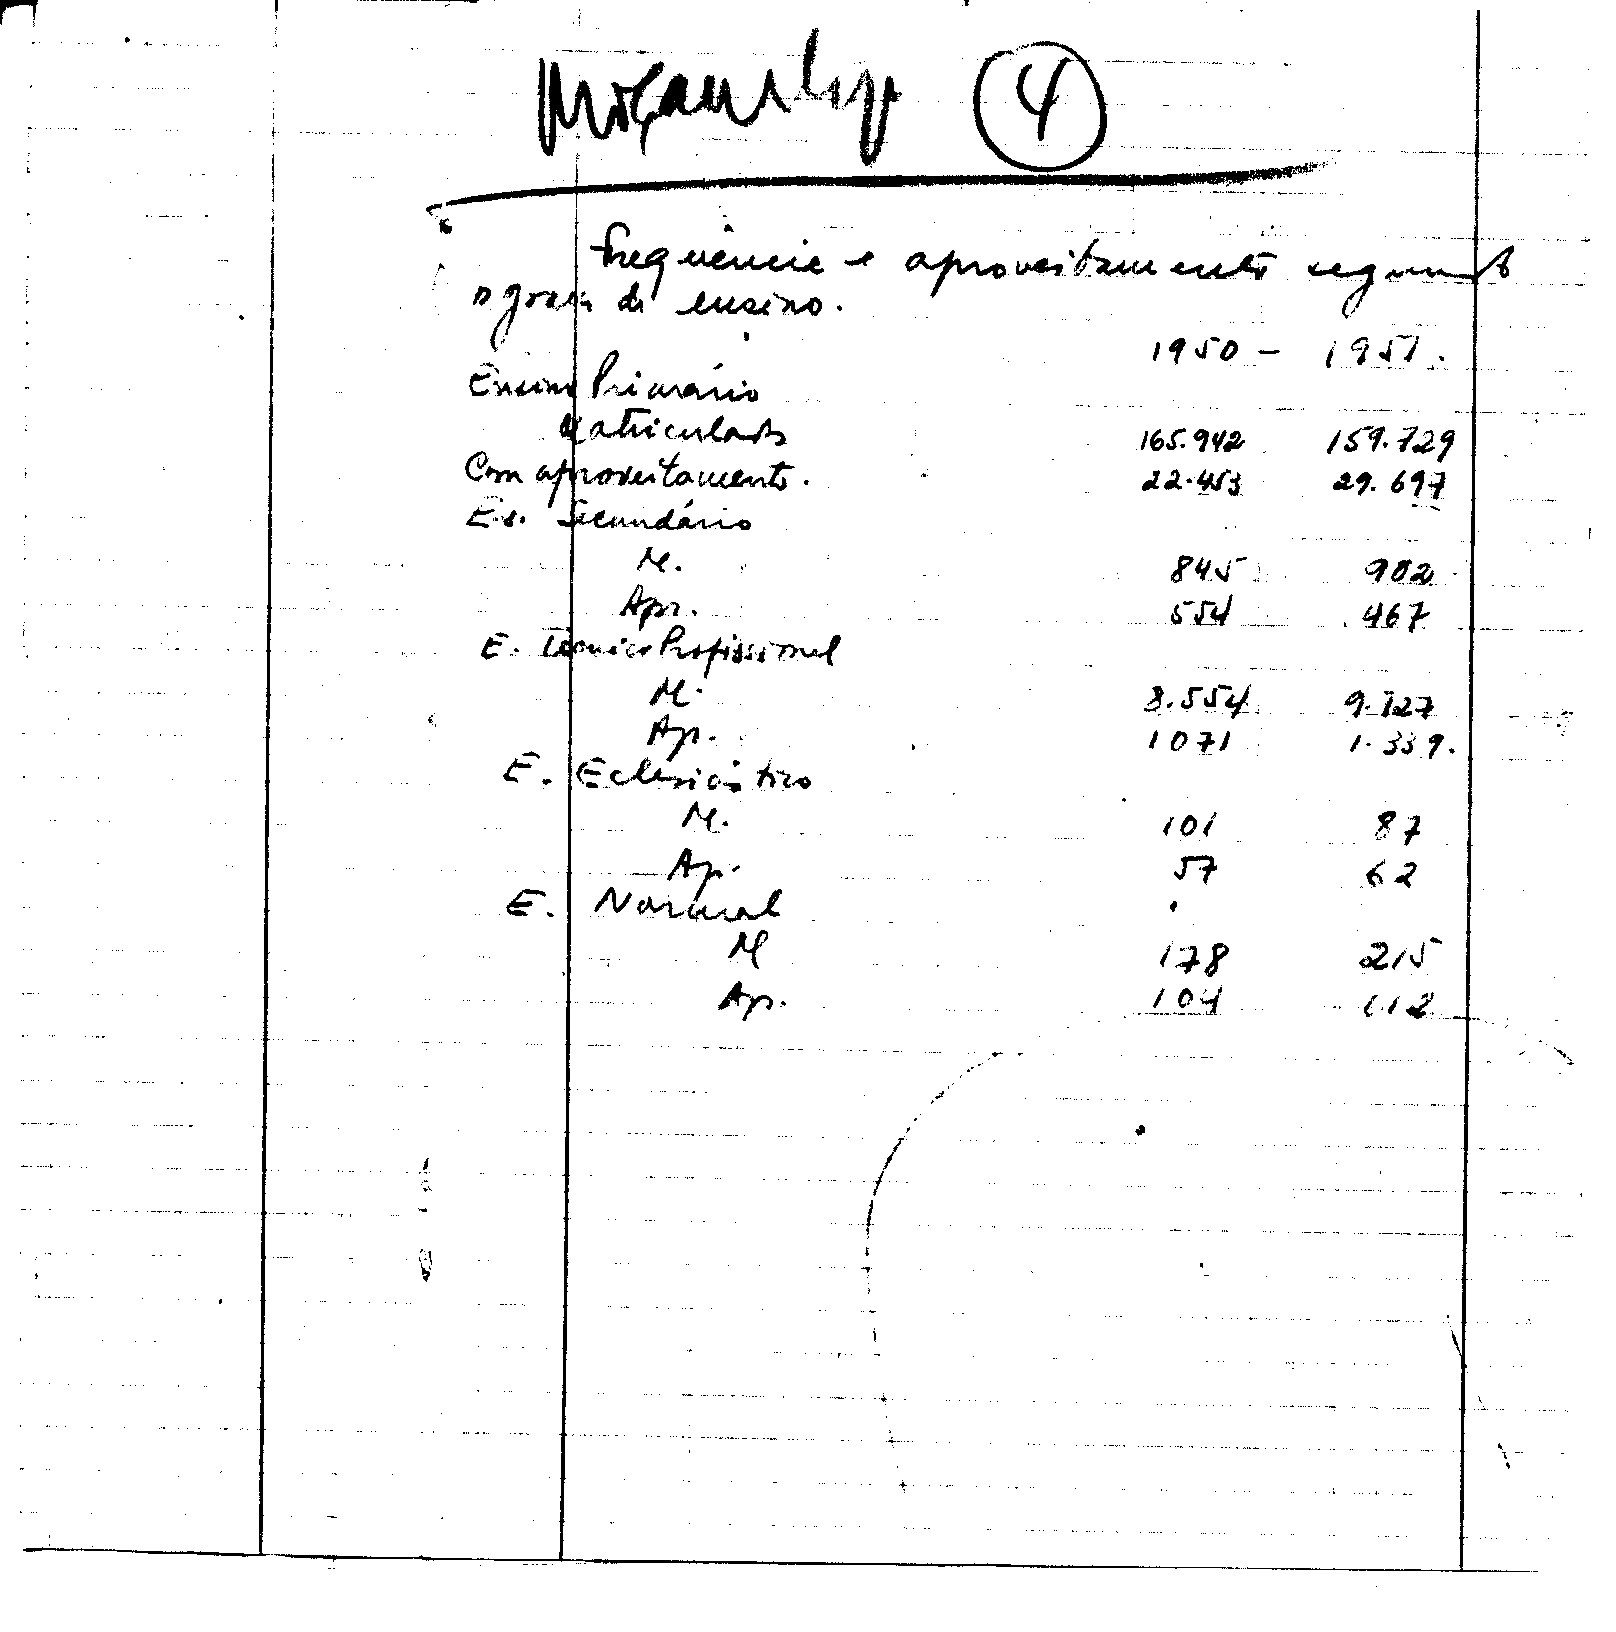 Moçambique 4
Frequência e aproveitamento segundo
o grau de ensino.
1950 - 1951.
Ensino Primário
Matriculados 165.942 159.729
Com aproveitamento. 22.453 29.697
Es. Secundário
M. 845 902
Apr. 554 467
E. Técnico Profissional
M. 8.554 9.127
Ap. 1071 1.339.
E. Eclesiástico
M. 101 87
Ap. 57 62
E. Normal
M 178 215
Ap. 104 112